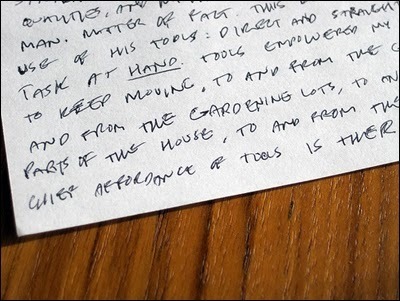 QUALITIES, AND
MAN. MATTER OF FACT. THIS
USE OF HIS TOOLS: DIRECT AND STRAIGH
TASK AT HAND. TOOLS EMPOWERED MY
TO KEEP MOVING, TO AND FROM THE G
AND FROM THE GARDENING LOTS, TO AN
PARTS OF THE HOUSE, TO AND FROM THE
CHIEF AFFORDANCE OF TOOLS IS THEIR